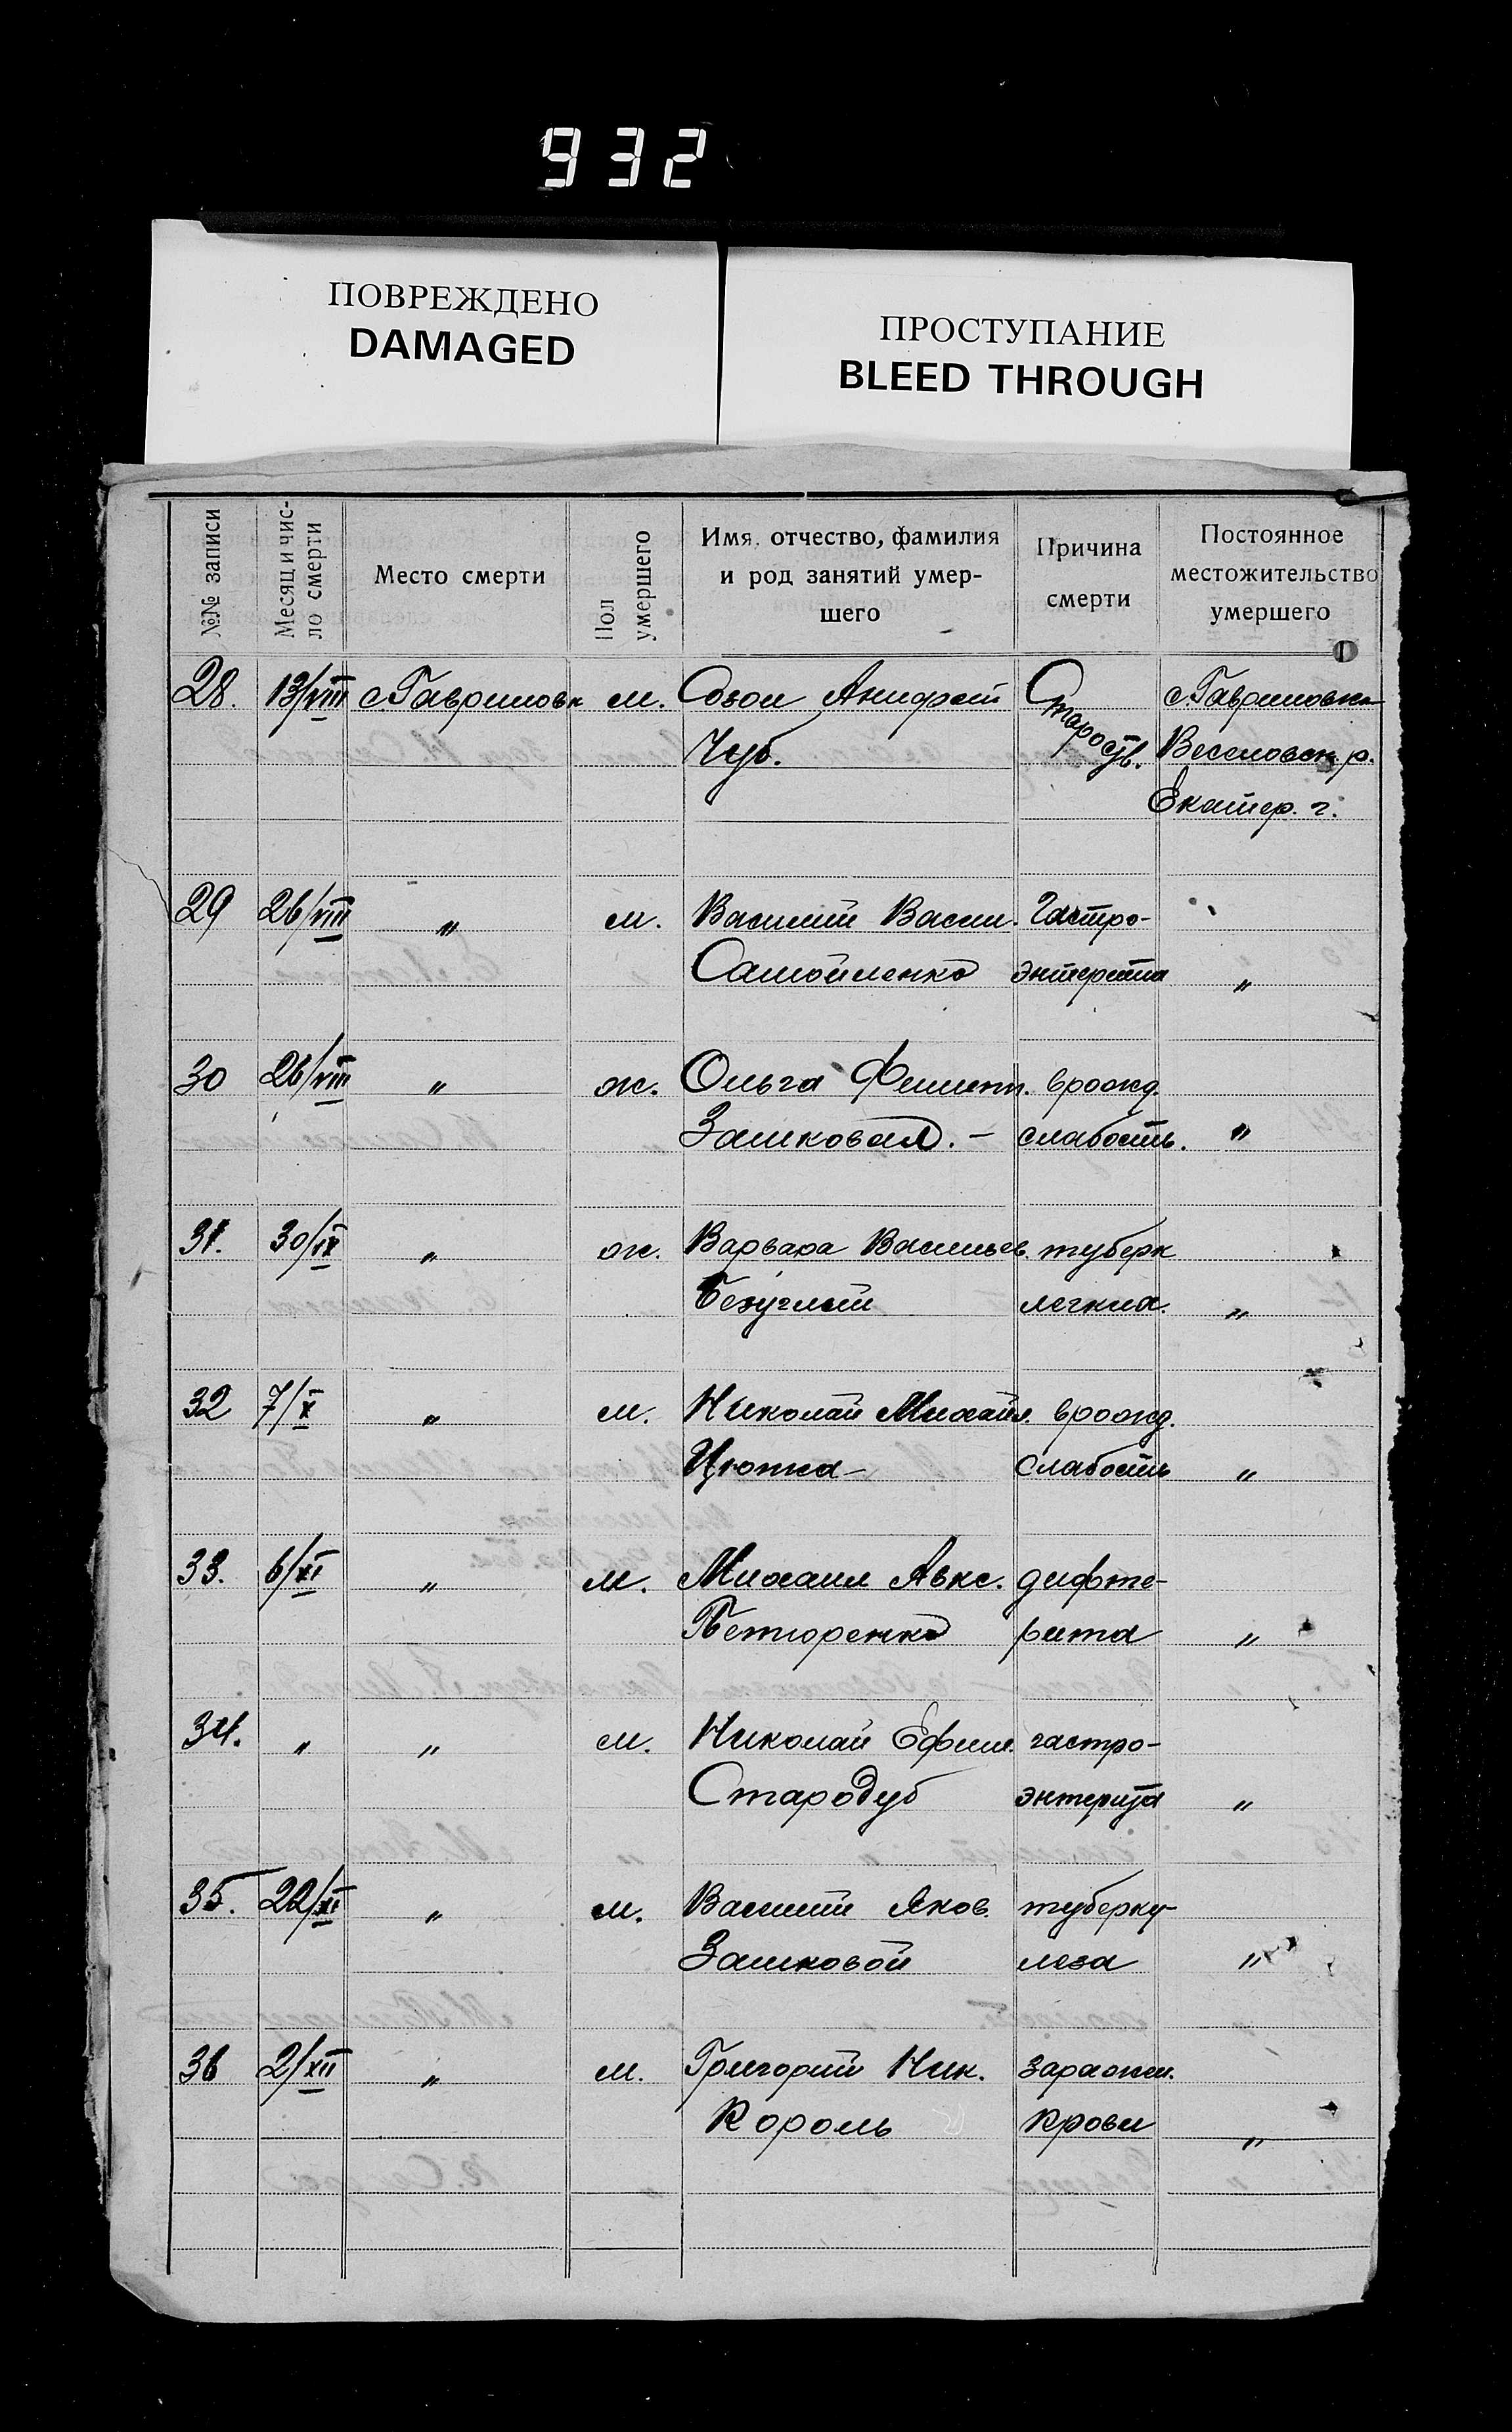 932
ПОВРЕЖДЕНО
DAMAGED
ПРОСТУПАНИЕ
BLEED THROUGH
№№ записи
Месяц и чис-
ло смерти
Место смерти
Пол
умершего
Имя, отчество, фамилия
и род занятий умер-
шего
Причина
смерти
Постоянное
местожительство
умершего
28. 13/VIII с. Гавриловк м. Созон Старость. с. Гавриловка
Чуб. Веселовск. р.
Екатер. г.
29 26/VIII " м. Василий Васил. Гастро-
Самойленко энтерита "
30 26/VIII " ж. Ольга Филипп. врожд.
Зашковая. - слабость. "
31. 30/IX " ж. Варвара Васильев. туберк
Безуглый легких. "
32 7/X " м. Николай Михайл. врожд.
Цюпка - слабость "
33. 6/XI " м. Михаил Авкс. дифте-
Петюренко рита "
34. " " м. Николай Ефим. гастро-
Стародуб энтерита "
35. 22/XI " м. Василий Яков. туберку-
Зашковой леза "
36 2/XII " м. Григорий Ник. заражен.
Король крови "